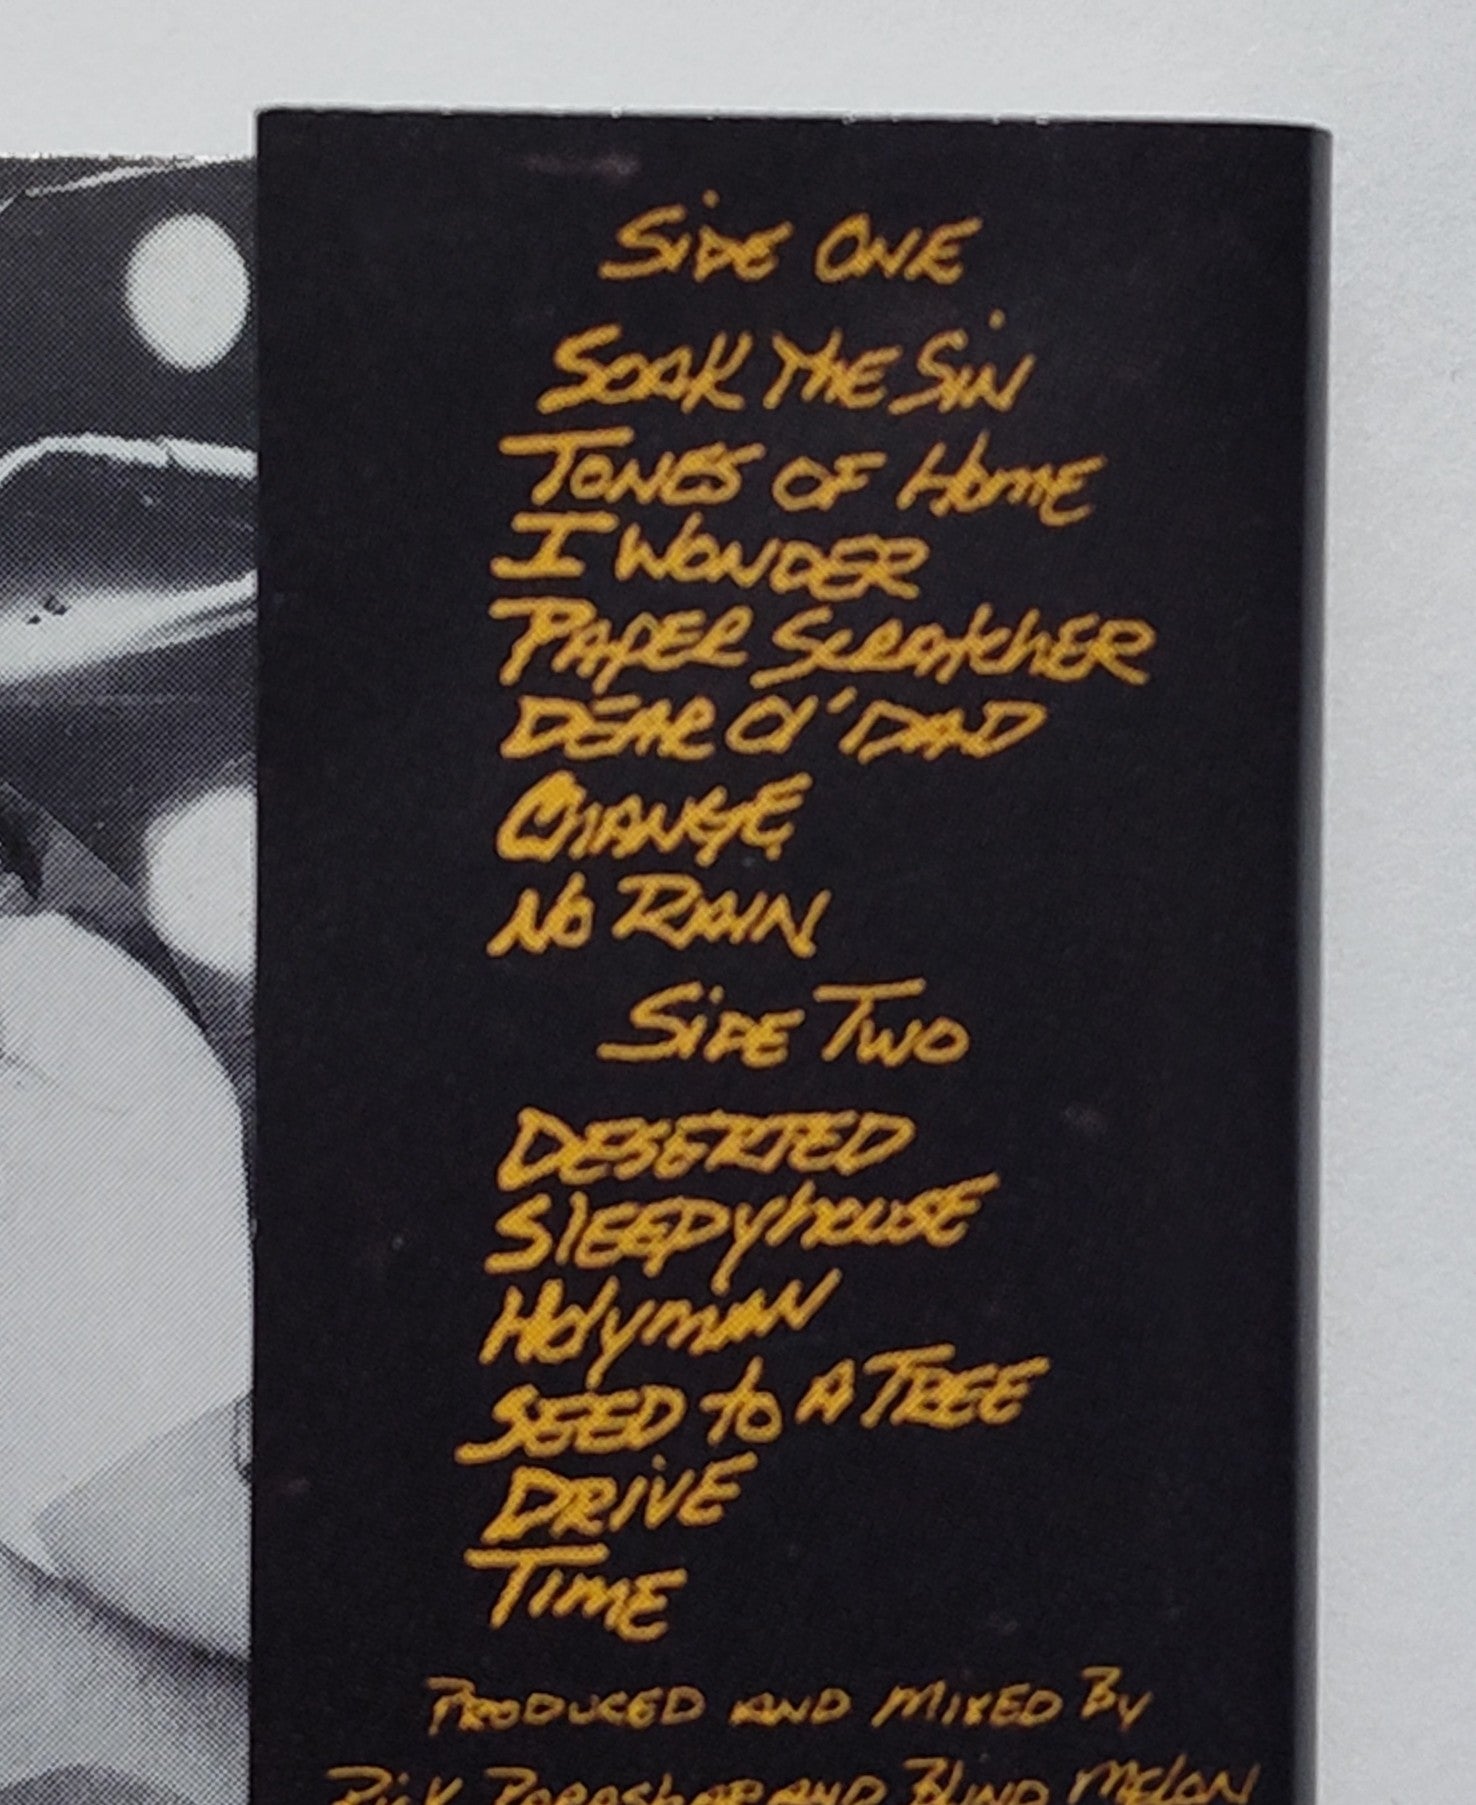 SiDE ONE
SOAK THE SiN
TONES OF HOME
I WONDER
PAPER SCRATCHER
DEAR Ol' DAD
CHANGE
NO RAIN
SiDE TWO
DESERTED
SlEEPyhOUSE
HOlyMAN
SEED to A TREE
DRiVE
TiME
PRODUCED AND MIXED By
RiCK PARASHAR AND BLIND MELON